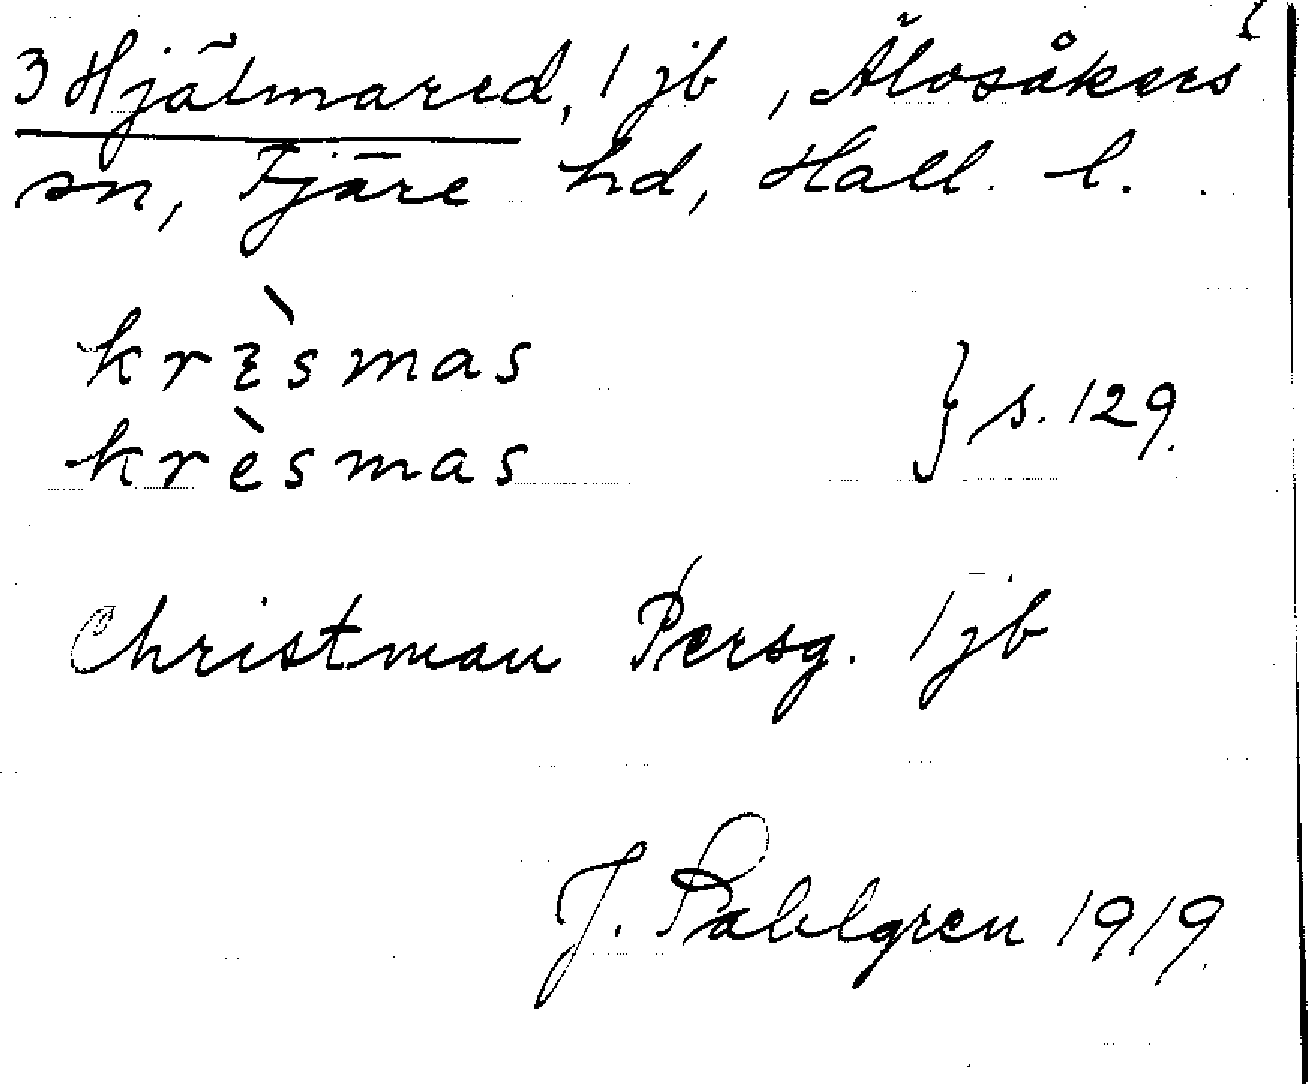 3 Hjälmared, 1 jb, Älvsåkers
sn, Fjäre hd, Hall. l.
krɛ̀smas
krèsmas } s. 129.
Christman Persg. 1 jb
J. Sahlgren 1919.